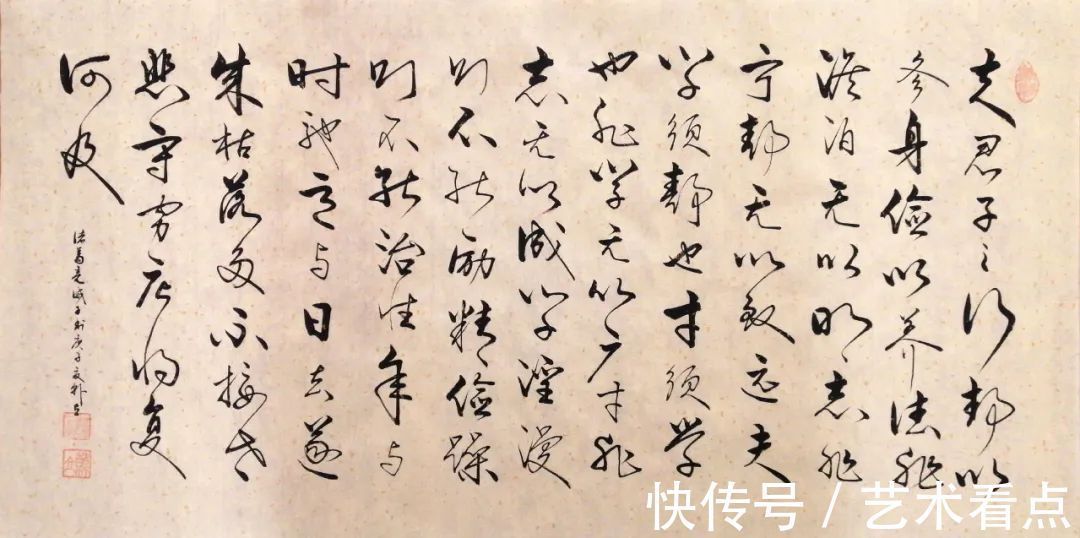 夫君子之行静以
修身俭以养德非
澹泊无以明志非
宁静无以致远夫
学须静也才须学
也非学无以广才非
志无以成学淫漫
则不能励精俭躁
则不能治性年与
时驰意与日去遂
成枯落多不接世
悲守穷庐将复
何及
诸葛亮诫子书庚子夏
快传号 / 艺术看点